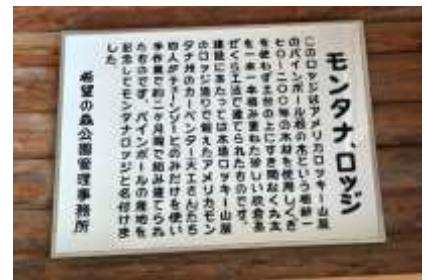 モンタナ、ロッジ
このロッジはアメリカロッキー山脈
のパインポール松の木という樹齢一
七〇~二〇〇年の木材を使用しくぎ
を使わず土台の上にすき間なく丸太
を一本一本積み重ねた珍しい校倉あ
ぜくら工法で建てられたものです。
建設にあたっては本場ロッキー山脈
のロッジ造りで鍛えたアメリカモン
タナ州のカーペンター大工さんたち
四人がチェーンソーとのみだけを使い
手作業で約二ヶ月間で組み建てられ
たものです。パインポールの産地を
記念してモンタナロッジと名付けま
した。
希望の森公園管理事務所